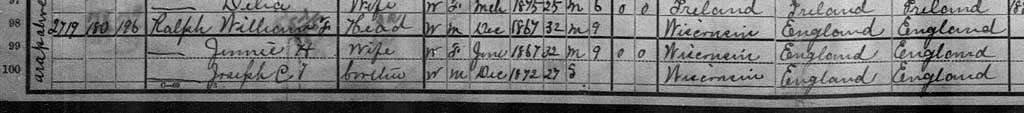 97 — Delia Wife W F Mch 1875 25 M 6 0 0 Ireland Ireland Ireland
98 2719 180 196 Ralph William F Head W M Dec 1867 32 M 9 Wisconsin England England
99 — Jennie H Wife W F June 1867 32 M 9 0 0 Wisconsin England England
100 — Joseph C. T brother W M Dec 1872 27 S Wisconsin England England